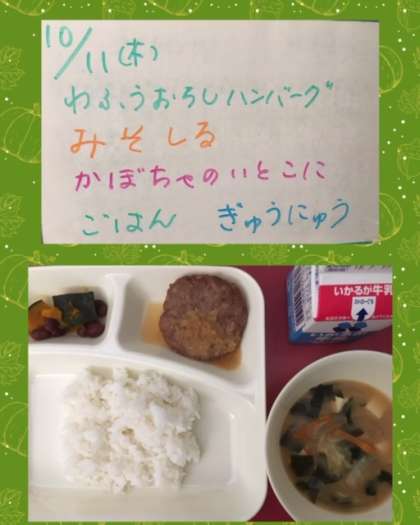 10/11(木)
わふうおろしハンバーグ
みそしる
かぼちゃのいとこに
ごはん ぎゅうにゅう
いかるが牛乳